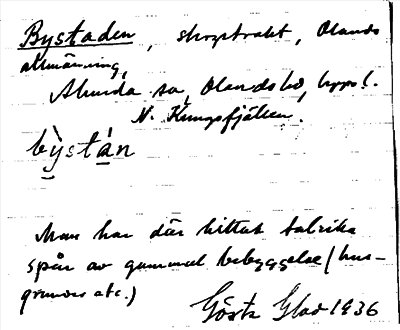 Bystaden, skogstrakt, Ölands
allmänning,
Alunda sn, Olands hd, Uppsl.
N. Kungsfjällen.
bỳstán
Man har där hittat talrika
spår av gammal bebyggelse (hus-
grunder etc.)
Gösta Glad 1936